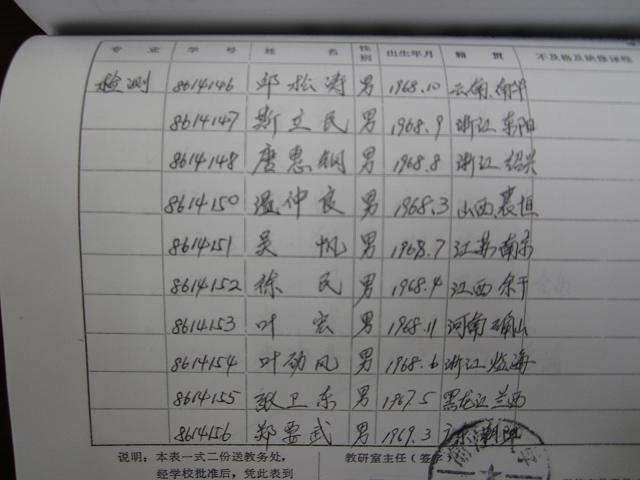 专 业 学 号 姓 名 性别 出生年月 籍 贯 不及格及缺修课程
检测 8614146 邱松涛 男 1968.10 云南
8614147 斯立民 男 1968.9 浙江东阳
8614148 唐惠钢 男 1968.8 浙江绍兴
8614150 温仲良 男 1968.3 山西襄垣
8614151 吴帆 男 1968.7 江苏南京
8614152 徐民 男 1968.4 江西余干
8614153 叶宏 男 1968.11 河南确山
8614154 叶劲风 男 1968.6 浙江临海
8614155 卫东 男 1967.5 黑龙江兰西
8614156 郑要武 男 1969.3 广东潮阳
说明:本表一式二份送教务处, 教研室主任(签字)
经学校批准后,凭此表到